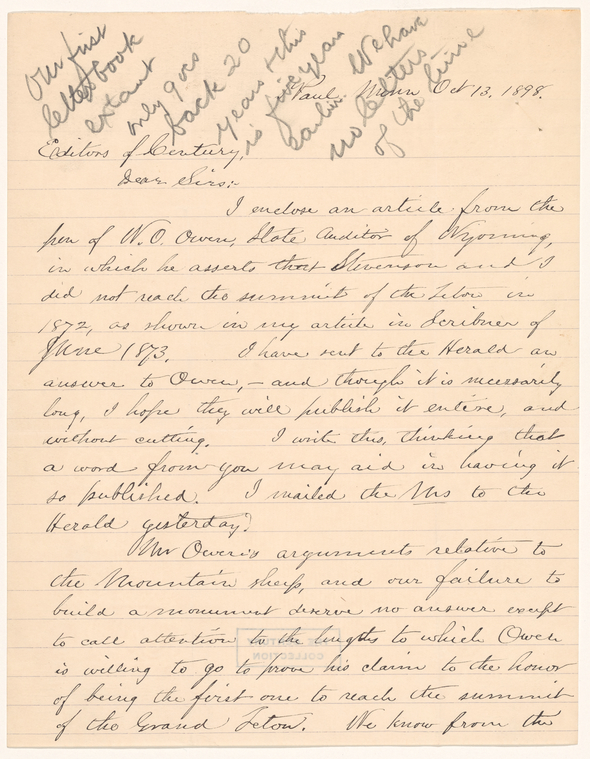 Our first
letterbook
extant
only goes
back 20
years & this
is five years
earlier. We have
no letters
of the time
Paul, Minn Oct 13, 1898.
Editors of Century,
Dear Sirs:-
I enclose an article from the
pen of W. O. Owen, State Auditor of Wyoming,
in which he asserts that Stevenson and I
did not reach the summit of the Teton in
1872, as shown in my article in Scribner of
June 1873. I have sent to the Herald an
answer to Owen, - and though it is necessarily
long, I hope they will publish it entire, and
without cutting. I write this, thinking that
a word from you may aid in having it
so published. I mailed the Ms to the
Herald yesterday.
Mr Owen's arguments relative to
the Mountain sheep, and our failure to
build a monument deserve no answer except
to call attention to the lengths to which Owen
is willing to go to prove his claim to the honor
of being the first one to reach the summit
of the Grand Teton. We know from the
COLLECTION